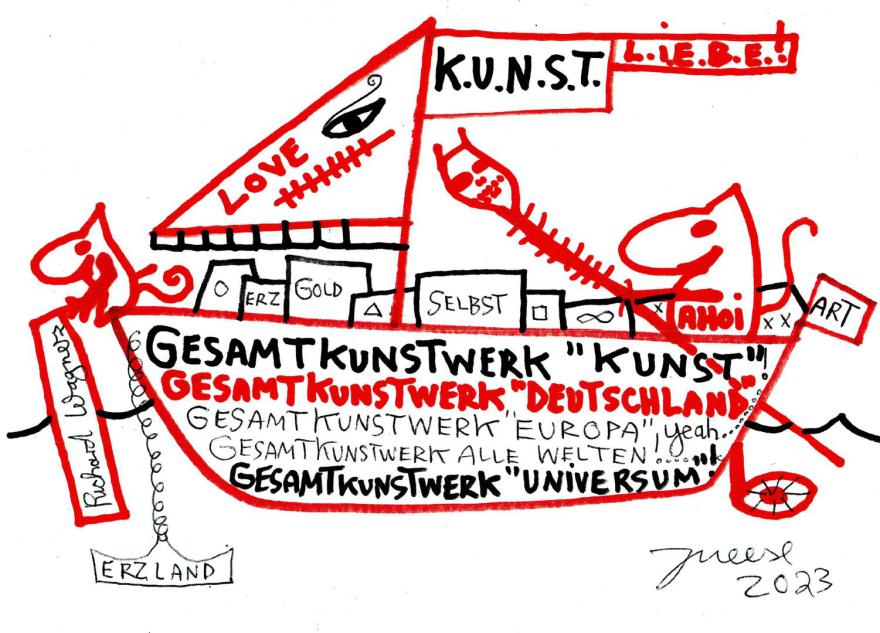 K.U.N.S.T.
L.i.E.B.E.!
LOVE
O
ERZ
GOLD
SELBST
∞
x
AHOi
x x
ART
GESAMTKUNSTWERK "KUNST"!
GESAMTKUNSTWERK "DEUTSCHLAND"
GESAMTKUNSTWERK "EUROPA", yeah....
GESAMTKUNSTWERK ALLE WELTEN!.....
GESAMTKUNSTWERK "UNiVERSUM"!
Richard Wagnerz
ERZLAND
JMeese
2023